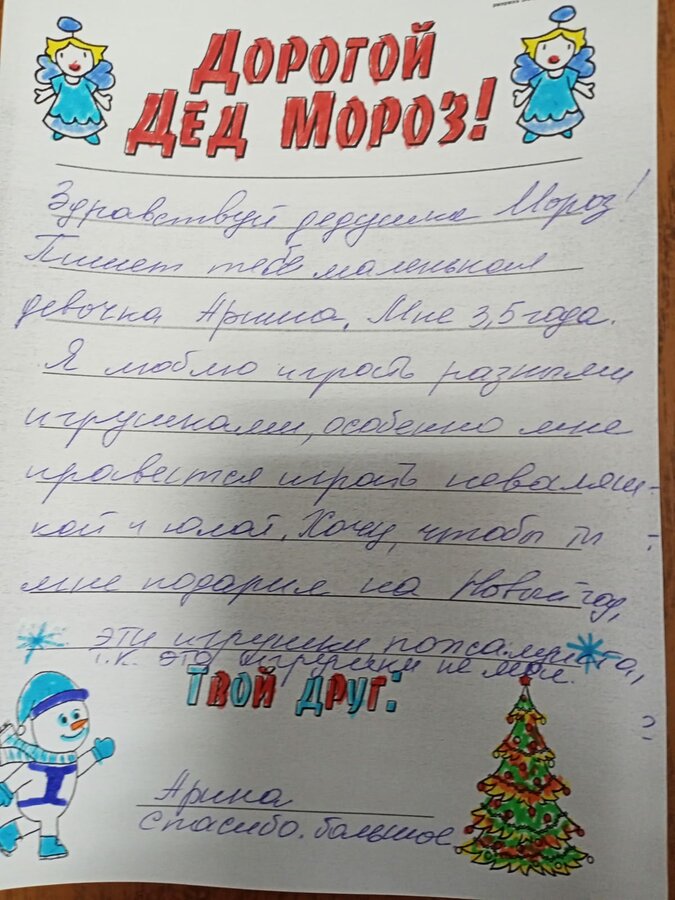 ДОРОГОЙ
ДЕД МОРОЗ!
Здравствуй дедушка Мороз!
Пишет тебе маленькая
девочка Арина. Мне 3,5 года.
Я люблю играть разными
игрушками, особенно мне
нравется играть неваляш-
кой и юлой. Хочу, чтобы ты
мне подарил на Новый год,
эти игрушки пожалуйста,
т.к. это игрушки не мои.
ТВОЙ ДРУГ:
Арина
Спасибо большое